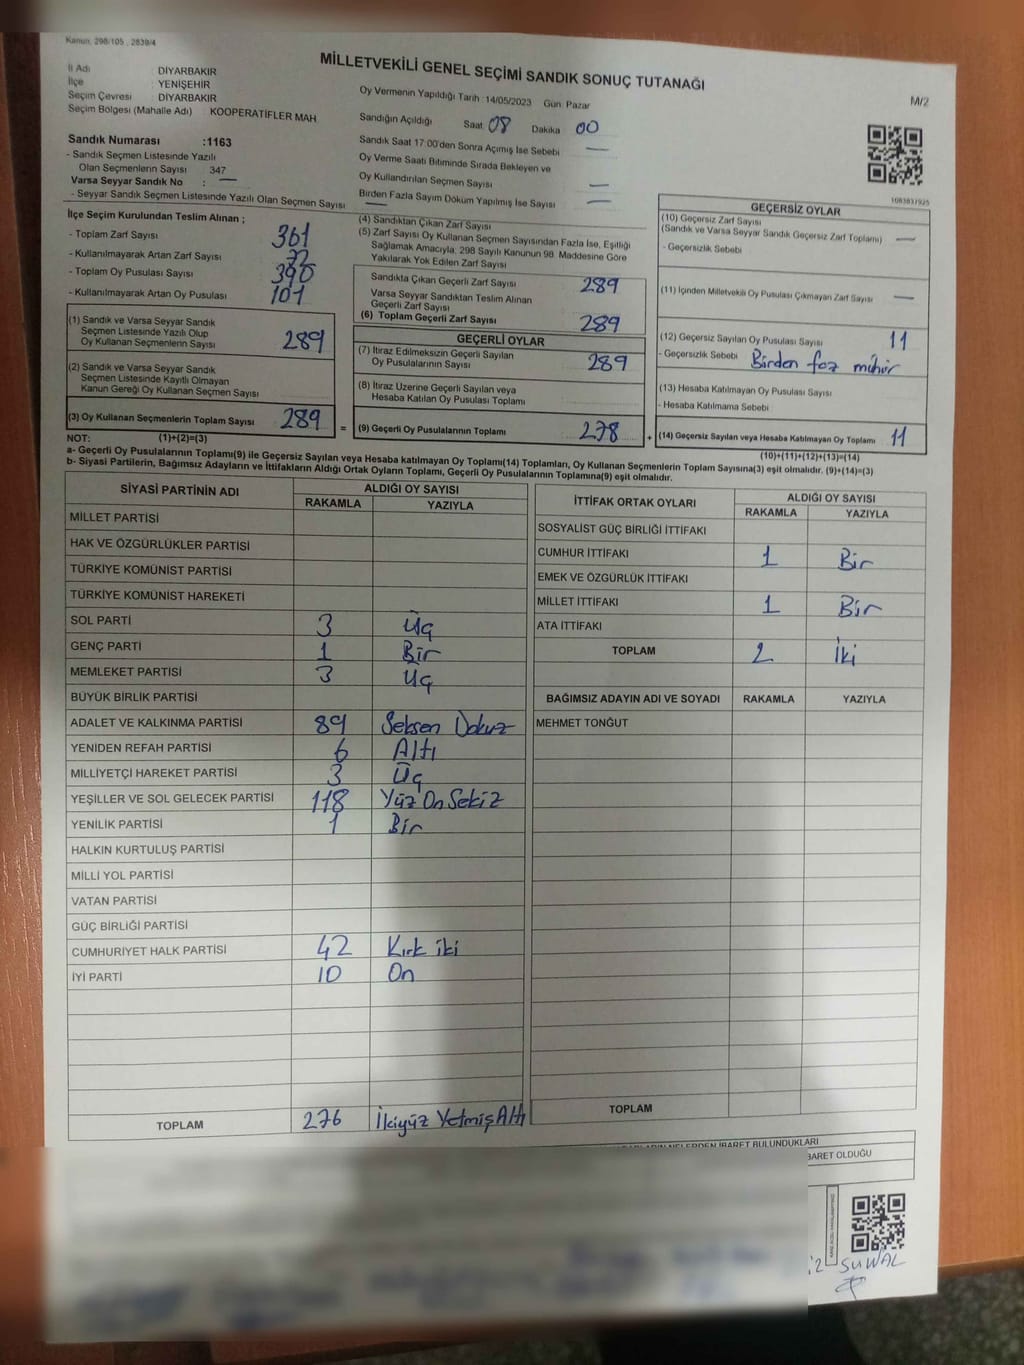 Kanun, 298/105 , 2839/4
MİLLETVEKİLİ GENEL SEÇİMİ SANDIK SONUÇ TUTANAĞI
M/2
İl Adı : DİYARBAKIR
İlçe : YENİŞEHİR
Seçim Çevresi : DİYARBAKIR
Seçim Bölgesi (Mahalle Adı) : KOOPERATİFLER MAH.
Sandık Numarası :1163
- Sandık Seçmen Listesinde Yazılı
Olan Seçmenlerin Sayısı 347
Varsa Seyyar Sandık No : —
- Seyyar Sandık Seçmen Listesinde Yazılı Olan Seçmen Sayısı —
Oy Vermenin Yapıldığı Tarih : 14/05/2023 Gün: Pazar
Sandığın Açıldığı Saat 08 Dakika 00
Sandık Saat 17:00'den Sonra Açımış İse Sebebi —
Oy Verme Saati Bitiminde Sırada Bekleyen ve
Oy Kullandırılan Seçmen Sayısı —
Birden Fazla Sayım Döküm Yapılmış İse Sayısı —
1083837925
İlçe Seçim Kurulundan Teslim Alınan ;
- Toplam Zarf Sayısı 361
- Kullanılmayarak Artan Zarf Sayısı 72
- Toplam Oy Pusulası Sayısı 390
- Kullanılmayarak Artan Oy Pusulası 101
(1) Sandık ve Varsa Seyyar Sandık
Seçmen Listesinde Yazılı Olup
Oy Kullanan Seçmenlerin Sayısı 289
(2) Sandık ve Varsa Seyyar Sandık
Seçmen Listesinde Kayıtlı Olmayan
Kanun Gereği Oy Kullanan Seçmen Sayısı
(3) Oy Kullanan Seçmenlerin Toplam Sayısı 289 =
(4) Sandıktan Çıkan Zarf Sayısı
(5) Zarf Sayısı Oy Kullanan Seçmen Sayısından Fazla İse, Eşitliği
Sağlamak Amacıyla, 298 Sayılı Kanunun 98. Maddesine Göre
Yakılarak Yok Edilen Zarf Sayısı
Sandıkta Çıkan Geçerli Zarf Sayısı 289
Varsa Seyyar Sandıktan Teslim Alınan
Geçerli Zarf Sayısı
(6) Toplam Geçerli Zarf Sayısı 289
GEÇERLİ OYLAR
(7) İtiraz Edilmeksizin Geçerli Sayılan
Oy Pusulalarının Sayısı 289
(8) İtiraz Üzerine Geçerli Sayılan veya
Hesaba Katılan Oy Pusulası Toplamı
(9) Geçerli Oy Pusulalarının Toplamı 278 +
GEÇERSİZ OYLAR
(10) Geçersiz Zarf Sayısı
(Sandık ve Varsa Seyyar Sandık Geçersiz Zarf Toplamı) —
- Geçersizlik Sebebi
(11) İçinden Milletvekili Oy Pusulası Çıkmayan Zarf Sayısı —
(12) Geçersiz Sayılan Oy Pusulası Sayısı 11
- Geçersizlik Sebebi Birden faz mühür
(13) Hesaba Katılmayan Oy Pusulası Sayısı
- Hesaba Katılmama Sebebi
(14) Geçersiz Sayılan veya Hesaba Katılmayan Oy Toplamı 11
NOT: (1)+(2)=(3) (10)+(11)+(12)+(13)=(14)
a- Geçerli Oy Pusulalarının Toplamı(9) ile Geçersiz Sayılan veya Hesaba katılmayan Oy Toplamı(14) Toplamları, Oy Kullanan Seçmenlerin Toplam Sayısına(3) eşit olmalıdır. (9)+(14)=(3)
b- Siyasi Partilerin, Bağımsız Adayların ve İttifakların Aldığı Ortak Oyların Toplamı, Geçerli Oy Pusulalarının Toplamına(9) eşit olmalıdır.
SİYASİ PARTİNİN ADI ALDIĞI OY SAYISI
RAKAMLA YAZIYLA
MİLLET PARTİSİ
HAK VE ÖZGÜRLÜKLER PARTİSİ
TÜRKİYE KOMÜNİST PARTİSİ
TÜRKİYE KOMÜNİST HAREKETİ
SOL PARTİ 3 Üç
GENÇ PARTİ 1 Bir
MEMLEKET PARTİSİ 3 Üç
BÜYÜK BİRLİK PARTİSİ
ADALET VE KALKINMA PARTİSİ 89 Seksen Dokuz
YENİDEN REFAH PARTİSİ 6 Altı
MİLLİYETÇİ HAREKET PARTİSİ 3 Üç
YEŞİLLER VE SOL GELECEK PARTİSİ 118 Yüz On Sekiz
YENİLİK PARTİSİ 1 Bir
HALKIN KURTULUŞ PARTİSİ
MİLLİ YOL PARTİSİ
VATAN PARTİSİ
GÜÇ BİRLİĞİ PARTİSİ
CUMHURİYET HALK PARTİSİ 42 Kırk iki
İYİ PARTİ 10 On
TOPLAM 276 İkiyüz Yetmiş Altı
İTTİFAK ORTAK OYLARI ALDIĞI OY SAYISI
RAKAMLA YAZIYLA
SOSYALİST GÜÇ BİRLİĞİ İTTİFAKI
CUMHUR İTTİFAKI 1 Bir
EMEK VE ÖZGÜRLÜK İTTİFAKI
MİLLET İTTİFAKI 1 Bir
ATA İTTİFAKI
TOPLAM 2 İki
BAĞIMSIZ ADAYIN ADI VE SOYADI RAKAMLA YAZIYLA
MEHMET TONĞUT
TOPLAM
İBARET BULUNDUKLARI
BARET OLDUĞU
SUWAL